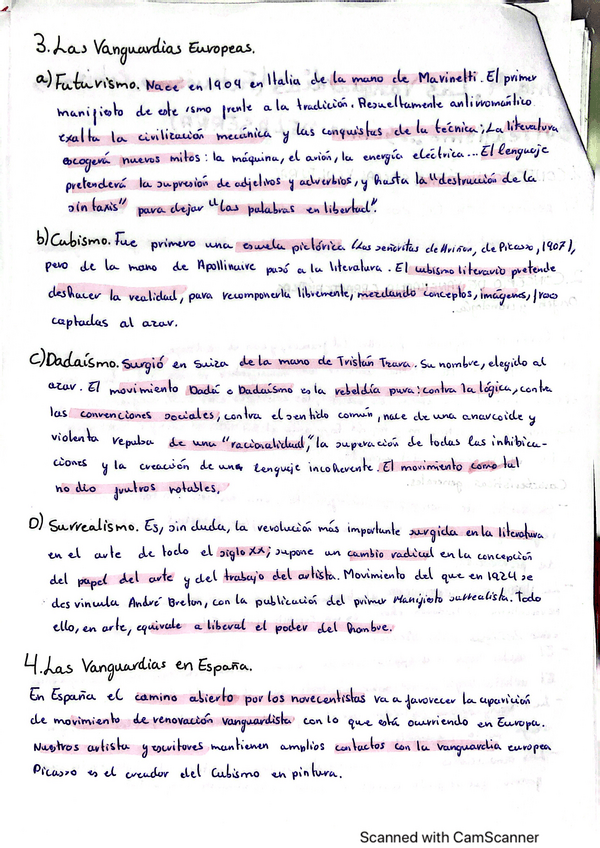 3. Las Vanguardias Europeas.
a) Futurismo. Nace en 1909 en Italia de la mano de Marinelti. El primer
manifiesto de este ismo frente a la tradición. Resueltamente antirromántico
exalta la civilización mecánica y las conquistas de la técnica; La literatura
escogerá nuevos mitos: la máquina, el avión, la energía eléctrica... El lenguaje
pretenderá la supresión de adjetivos y adverbios, y hasta la "destrucción de la
sintaxis" para dejar "las palabras en libertad".
b) Cubismo. Fue primero una escuela pictórica (Las señoritas de Aviñon, de Picasso, 1907),
pero de la mano de Apollinaire pasó a la literatura. El cubismo literario pretende
deshacer la realidad, para recomponerla libremente, mezclando conceptos, imágenes, frases
captadas al azar.
C) Dadaísmo. Surgió en Suiza de la mano de Tristán Tzara. Su nombre, elegido al
azar. El movimiento Dadá o Dadaísmo es la rebeldía pura: contra la lógica, contra
las convenciones sociales, contra el sentido común, nace de una anarcoide y
violenta repulsa de una "racionalidad", la superación de todas las inhibica-
ciones y la creación de una lenguaje incoherente. El movimiento como tal
no dio frutros notables.
D) Surrealismo. Es, sin duda, la revolución más importante surgida en la literatura
en el arte de todo el siglo XX; supone un cambio radical en la concepción
del papel del arte y del trabajo del artista. Movimiento del que en 1924 se
desvincula André Breton, con la publicación del primer Manifiesto surrealista. Todo
ello, en arte, equivale a liberal el poder del hombre.
4. Las Vanguardias en España.
En España el camino abierto por los novecentistas va a favorecer la aparición
de movimiento de renovación vanguardista con lo que está ocurriendo en Europa.
Nuestros artista y escritores mantienen amplios contactos con la vanguardia europea
Picasso es el creador del Cubismo en pintura.
Scanned with CamScanner